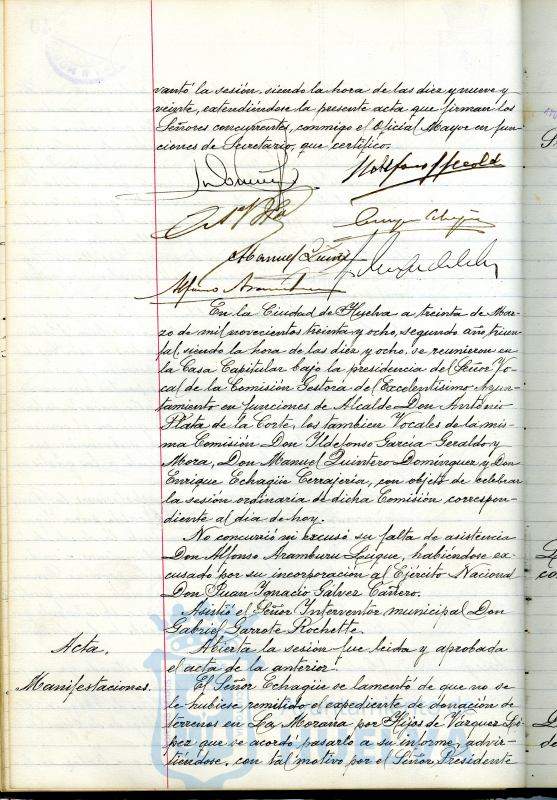 vantó la sesión, siendo la hora de las diez y nueve y
veinte, extendiéndose la presente acta que firman los
Señores concurrentes, conmigo el Oficial Mayor en fun-
ciones de Secretario, que certifico.
Manuel Quin
En la Ciudad de Huelva a treinta de Mar-
zo de mil novecientos treinta y ocho, segundo año triun-
fal, siendo la hora de las diez y ocho, se reunieron en
la Casa Capitular bajo la presidencia del Señor Vo-
cal de la Comisión Gestora del Excelentísimo Ayun-
tamiento en funciones de Alcalde Don Antonio
Plata de la Corte, los tambien Vocales de la mis-
ma Comisión Don Ildefonso García-Geraldo y
Mora, Don Manuel Quintero Domínguez y Don
Enrique Echagüe Cerrajería, con objeto de celebrar
la sesión ordinaria de dicha Comisión correspon-
diente al día de hoy.
No concurrió ni excusó su falta de asistencia
Don Alfonso Aramburu Luque, habiéndose ex-
cusado por su incorporación al Ejército Nacional
Don Juan Ignacio Gálvez Cañero.
Asistió el Señor Interventor municipal Don
Gabriel Garrote Rochette.
Acta. Abierta la sesión fue leida y aprobada
el acta de la anterior.
Manifestaciones. El Señor Echagüe se lamentó de que no se
le hubiese remitido el expediente de donación de
terrenos en La Morana por Hijos de Vázquez Ló-
pez que se acordó pasarlo a su informe, advir-
tiéndose, con tal motivo por el Señor Presidente
HUELVA